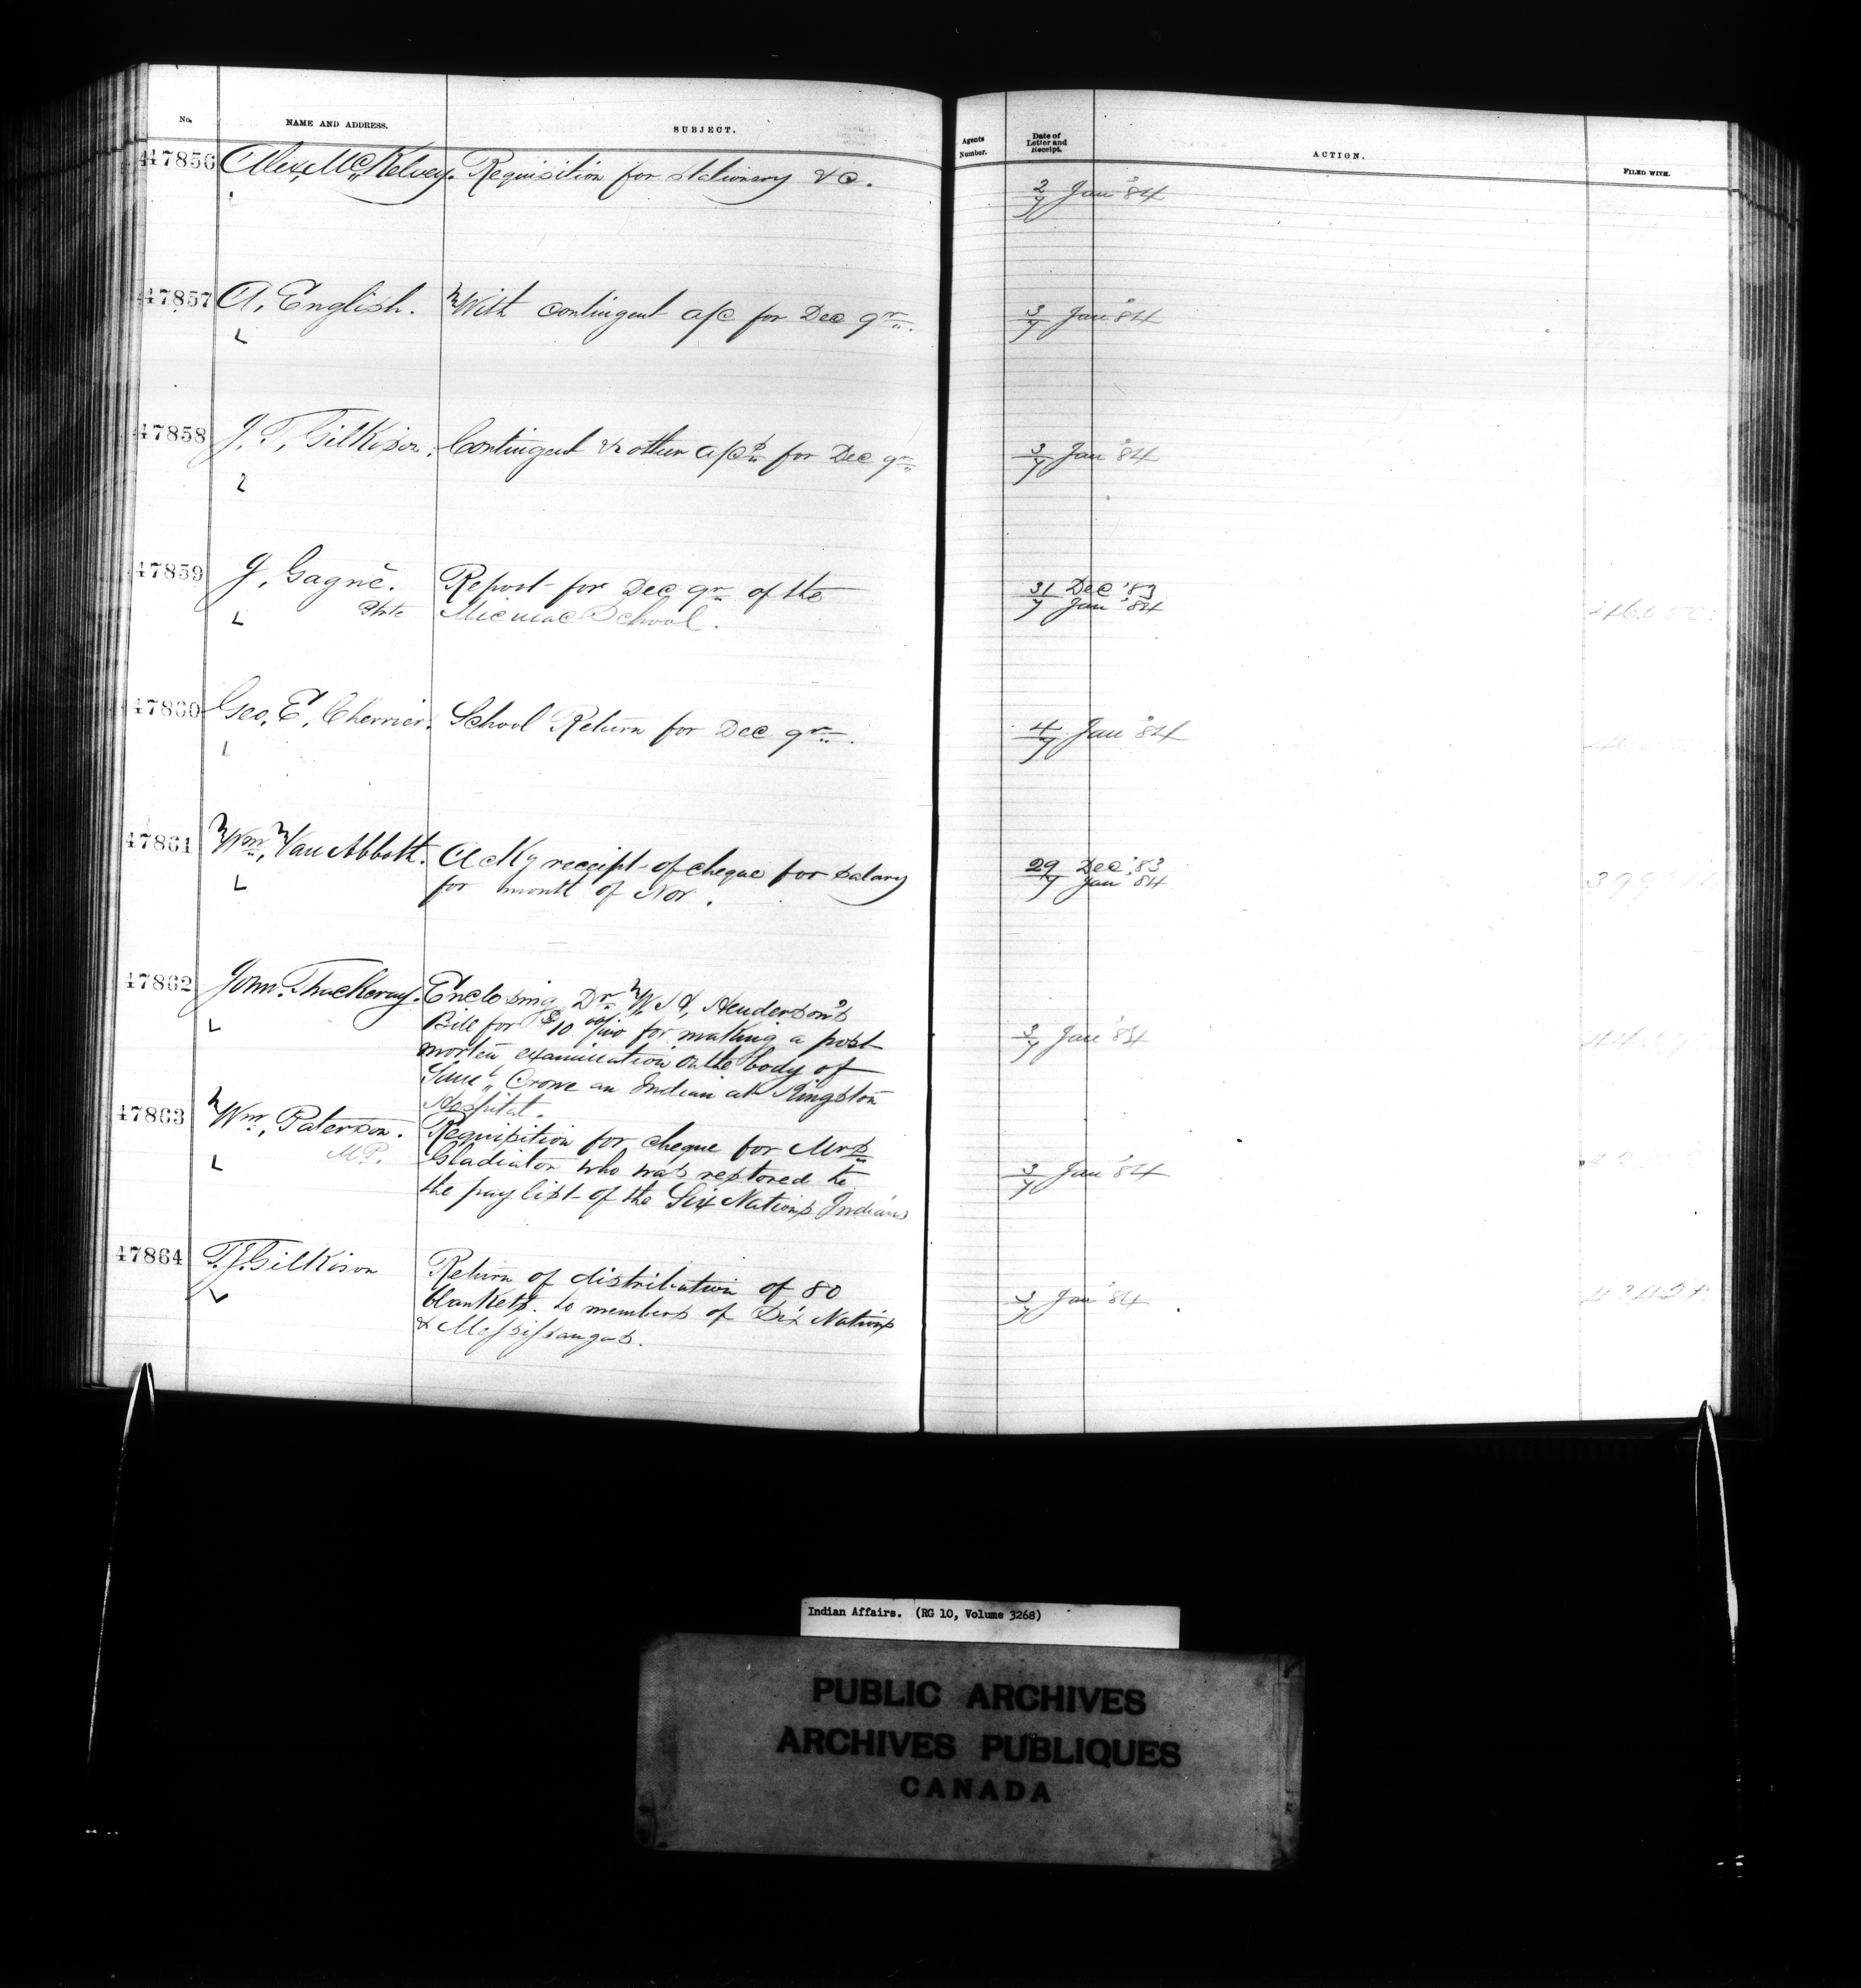 No. NAME AND ADDRESS. SUBJECT. Agents Number. Date of Letter and Receipt. ACTION. FILED WITH.
47856 Alex, McKelvey. Requisition for stationery &c. 2/7 Jan '84
47857 A, English. With contingent a/c for Dec qr. 3/7 Jan '84
47858 J, T, Gilkison. Contingent & other a/cs for Dec qr 3/7 Jan '84
47859 J, Gagné. Report for Dec qr of the 31 Dec '83
Micmac School. 7 Jan '84
47860 Geo, E, Cherrier. School Return for Dec qr. 4/7 Jan '84
47861 Wm, Van Abbott. Ackg receipt of cheque for salary 29 Dec '83
for month of Nov. 7 Jan '84
47862 John Thackeray. Enclosing Dr W. H, Henderson's
Bill for $10 00/100 for making a post 3/7 Jan '84
mortem examination on the body of
Saml Crowe an Indian at Kingston
Hospital.
47863 Wm, Paterson. Requisition for cheque for Mrs
M.P. Gladiator who was restored to 3/7 Jan '84
the pay list of the Six Nations Indians
47864 T. J. Gilkison Return of distribution of 80
blankets to members of Six Nations 3/7 Jan '84
& Messissaugas.
Indian Affairs. (RG 10, Volume 3268)
PUBLIC ARCHIVES
ARCHIVES PUBLIQUES
CANADA